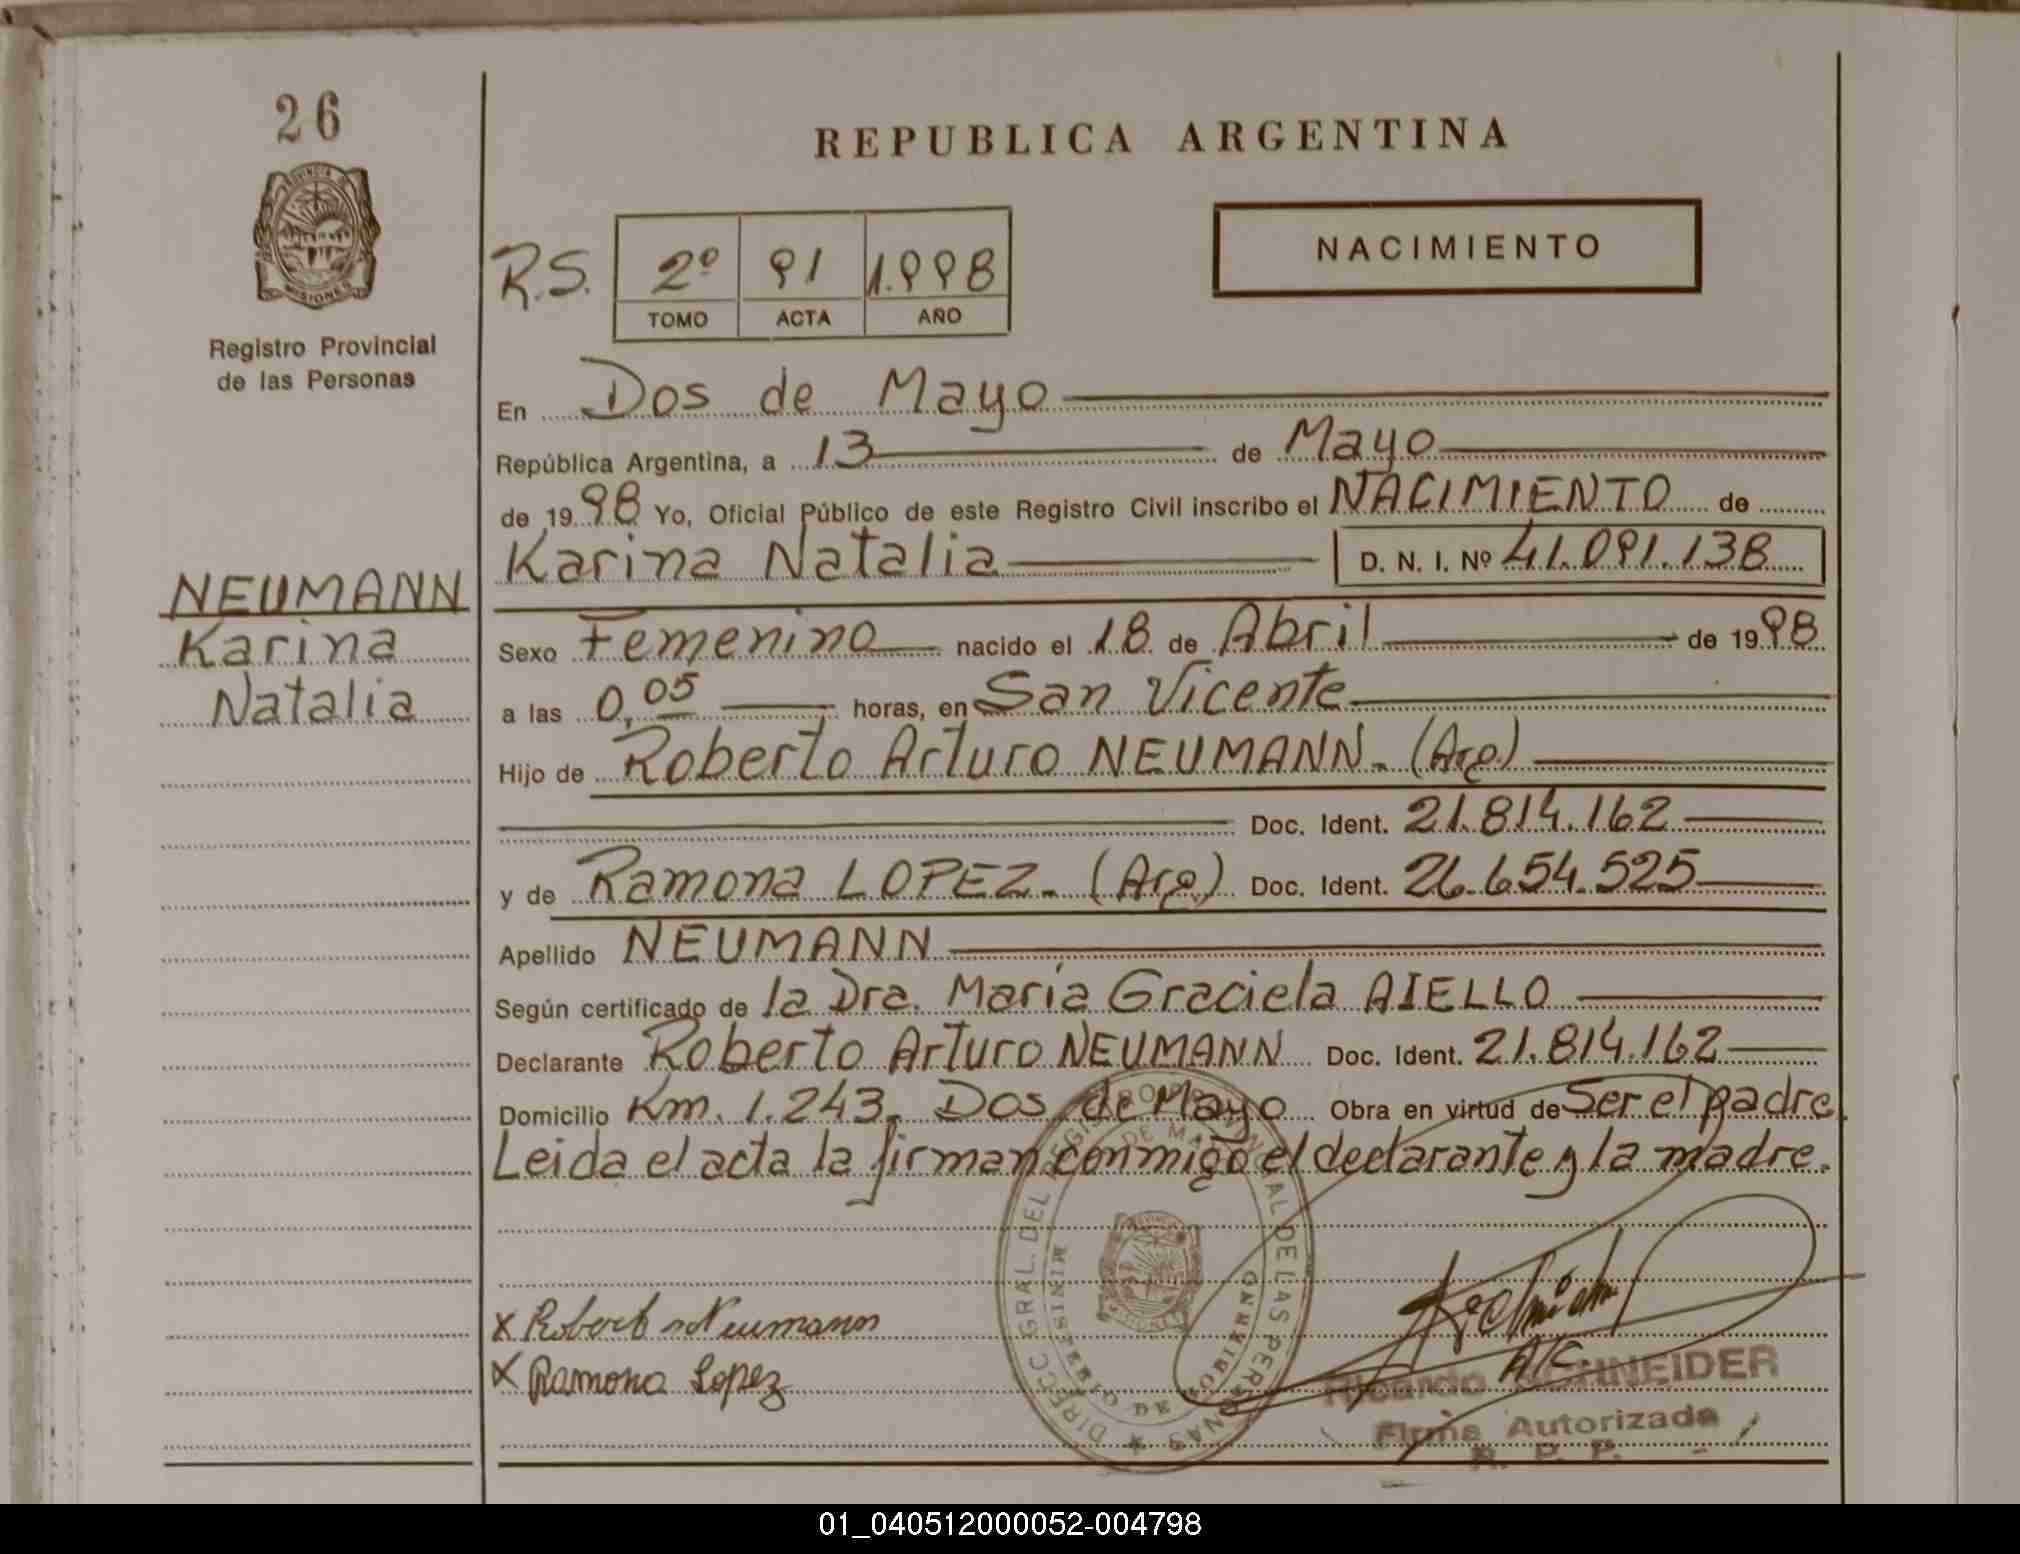 26
PROVINCIA DE
MISIONES
Registro Provincial
de las Personas
REPUBLICA ARGENTINA
NACIMIENTO
R.S. 2º 91 1.998
TOMO ACTA AÑO
En Dos de Mayo
República Argentina, a 13 de Mayo
de 1998 Yo, Oficial Público de este Registro Civil inscribo el NACIMIENTO de
Karina Natalia D. N. I. Nº 41.091.138
NEUMANN
Karina
Natalia
Sexo Femenino nacido el 18 de Abril de 1998
a las 0,05 horas, en San Vicente
Hijo de Roberto Arturo NEUMANN. (Arg)
Doc. Ident. 21.814.162
y de Ramona LOPEZ. (Arg) Doc. Ident. 26.654.525
Apellido NEUMANN
Según certificado de la Dra. María Graciela AIELLO
Declarante Roberto Arturo NEUMANN Doc. Ident. 21.814.162
Domicilio Km. 1.243. Dos de Mayo Obra en virtud de Ser el padre.
Leida el acta la firman conmigo el declarante y la madre.
DIRECC GRAL. DEL REGISTRO PROVINCIAL DE LAS PERSONAS
MINISTERIO DE GOBIERNO
x Roberto Neumann
x Ramona Lopez
A/C
Ricardo SCHNEIDER
Firma Autorizada
R. P. P.
01_040512000052-004798